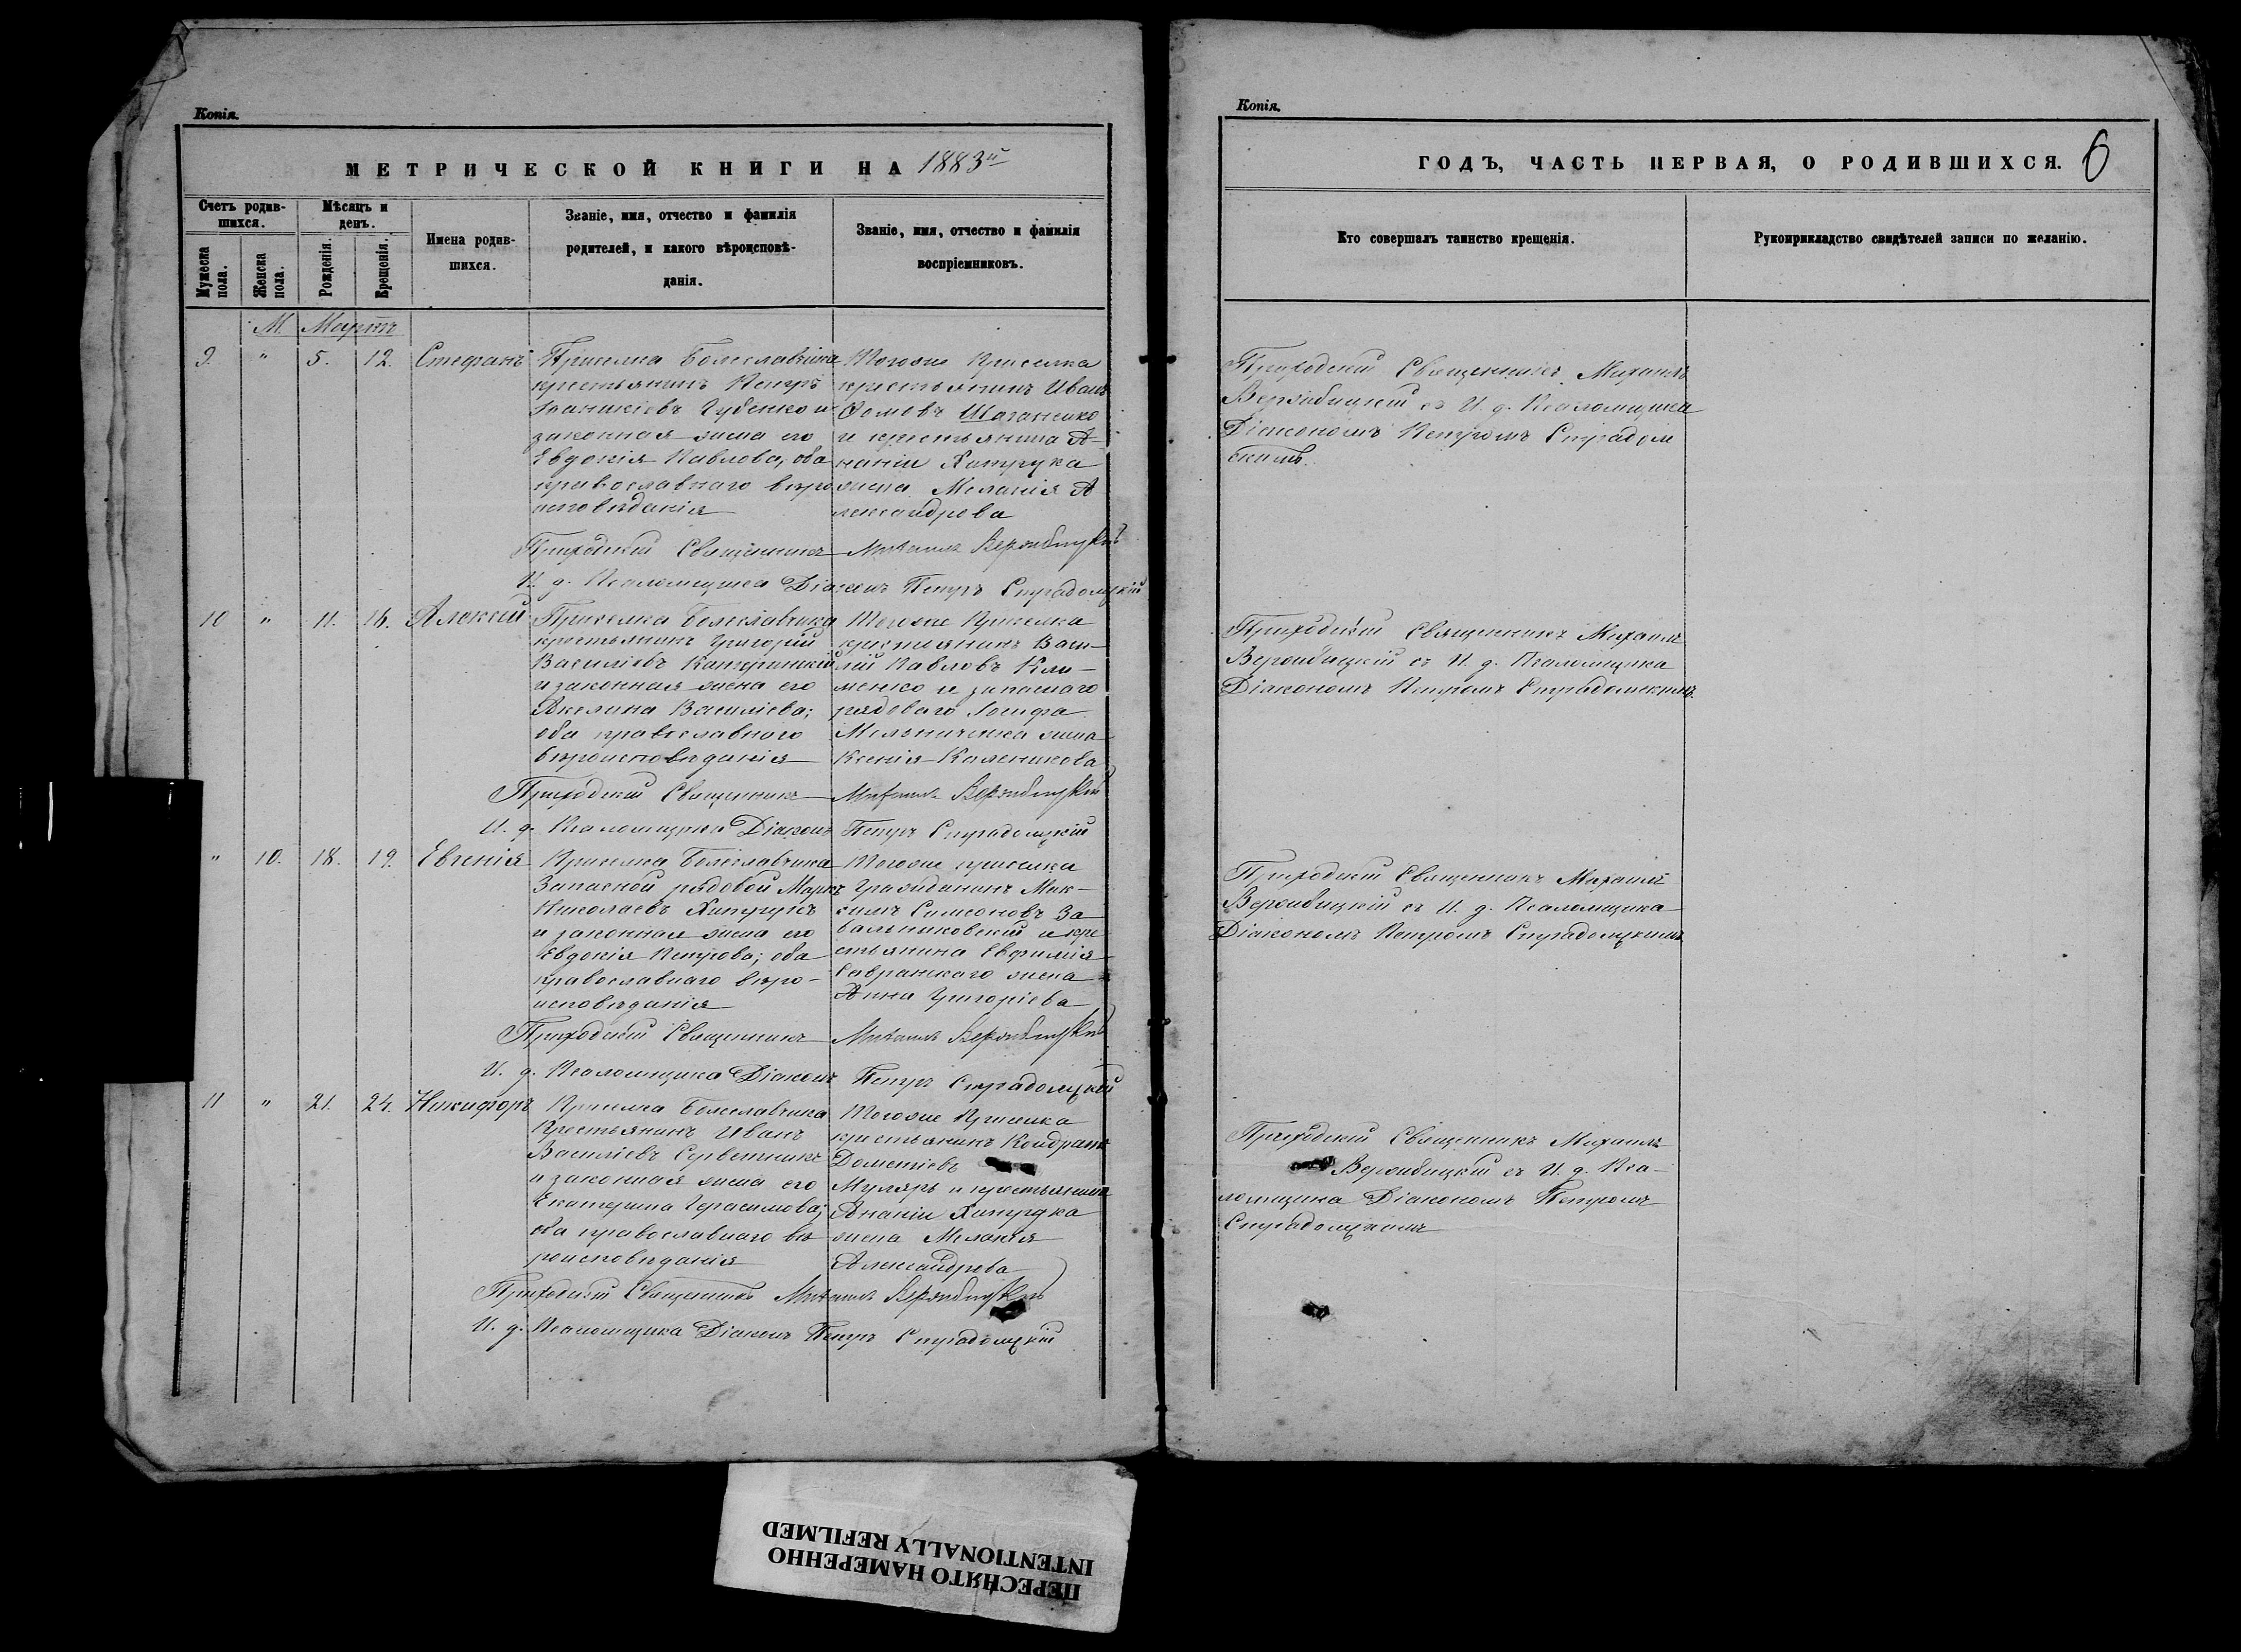 Копія.
МЕТРИЧЕСКОЙ КНИГИ НА 1883й
Счетъ родив-
шихся.
Мужеска
пола.
Женска
пола.
Мѣсяцъ и
день.
Рожденія.
Крещенія.
Имена родив-
шихся.
Званіе, имя, отчество и фамилія
родителей, и какого вѣроисповѣ-
данія.
Званіе, имя, отчество и фамилія
воспріемниковъ.
М. Мартъ
9. " 5. 12. Стефанъ
Приселка Болеславчика
крестьянинъ Петръ
Губенко и
законная жена его
Евдокія Павлова, оба
православнаго вѣро
исповѣданія
Тогоже Приселка
крестьянинъ Иванъ
Фомовъ
и крестьянина А-
наніи Хитрука
жена Меланія А
лександрова
Приходскій Священникъ Михаилъ Вержбицкій
И. д. Псаломщика Діаконъ Петръ Страдомскій
10 " 11. 16. Алексій
Приселка Болеславчика
крестьянинъ Григорій
Василіевъ
и законная жена его
Акелина Василіева;
оба православного
вѣроисповѣданія
Тогоже Приселка
крестьянинъ Васи-
лій Павловъ Кли-
менко и запаснаго
рядоваго Іосифа
Мельниченка жена
Ксенія Каленикова
Приходскій Священникъ Михаилъ Вержбицкій
И. д. Псаломщика Діаконъ Петръ Страдомскій
" 10. 18. 19. Евгенія
Приселка Болеславчика
Запасной рядовой Маркъ
Николаевъ Хитрукъ
и законная жена его
Евдокія Петрова; оба
православнаго вѣро-
исповѣданія
Тогоже приселка
Гражданинъ Мак-
симъ Симеоновъ За
вальниковскій и кре
стьянина Евфимія
Савранскаго жена
Анна Григоріева
Приходскій Священникъ Михаилъ Вержбицкій
И. д. Псаломщика Діаконъ Петръ Страдомскій
11 " 21. 24. Никифоръ
Приселка Болеславчика
Крестьянинъ Иванъ
Василіевъ
и законная жена его
Екатерина Герасимова;
оба православнаго вѣ
роисповѣданія
Тогоже Приселка
крестьянинъ Кондратъ
Дометіевъ
Муляръ и крестьянина
Ананіи Хитрука
жена Меланія
Александрова
Приходскій Священникъ Михаилъ Вержбицкій
И. д. Псаломщика Діаконъ Петръ Страдомскій
Копія.
ГОДЪ, ЧАСТЬ ПЕРВАЯ, О РОДИВШИХСЯ. 6
Кто совершалъ таинство крещенія.
Рукоприкладство свидѣтелей записи по желанію.
Приходскій Священникъ Михаилъ
Вержбицкій съ И. д. Псаломщика
Діакономъ Петромъ Страдом
скимъ.
Приходскій Священникъ Михаилъ
Вержбицкій съ И. д. Псаломщика
Діакономъ Петромъ Страдомскимъ.
Приходскій Священникъ Михаилъ
Вержбицкій съ И. д. Псаломщика
Діакономъ Петромъ Страдомскимъ
Приходскій Священникъ Михаилъ
Вержбицкій съ И. д. Пса-
ломщика Діакономъ Петромъ
Страдомскимъ
ПЕРЕСНЯТО НАМЕРЕННО
INTENTIONALLY REFILMED